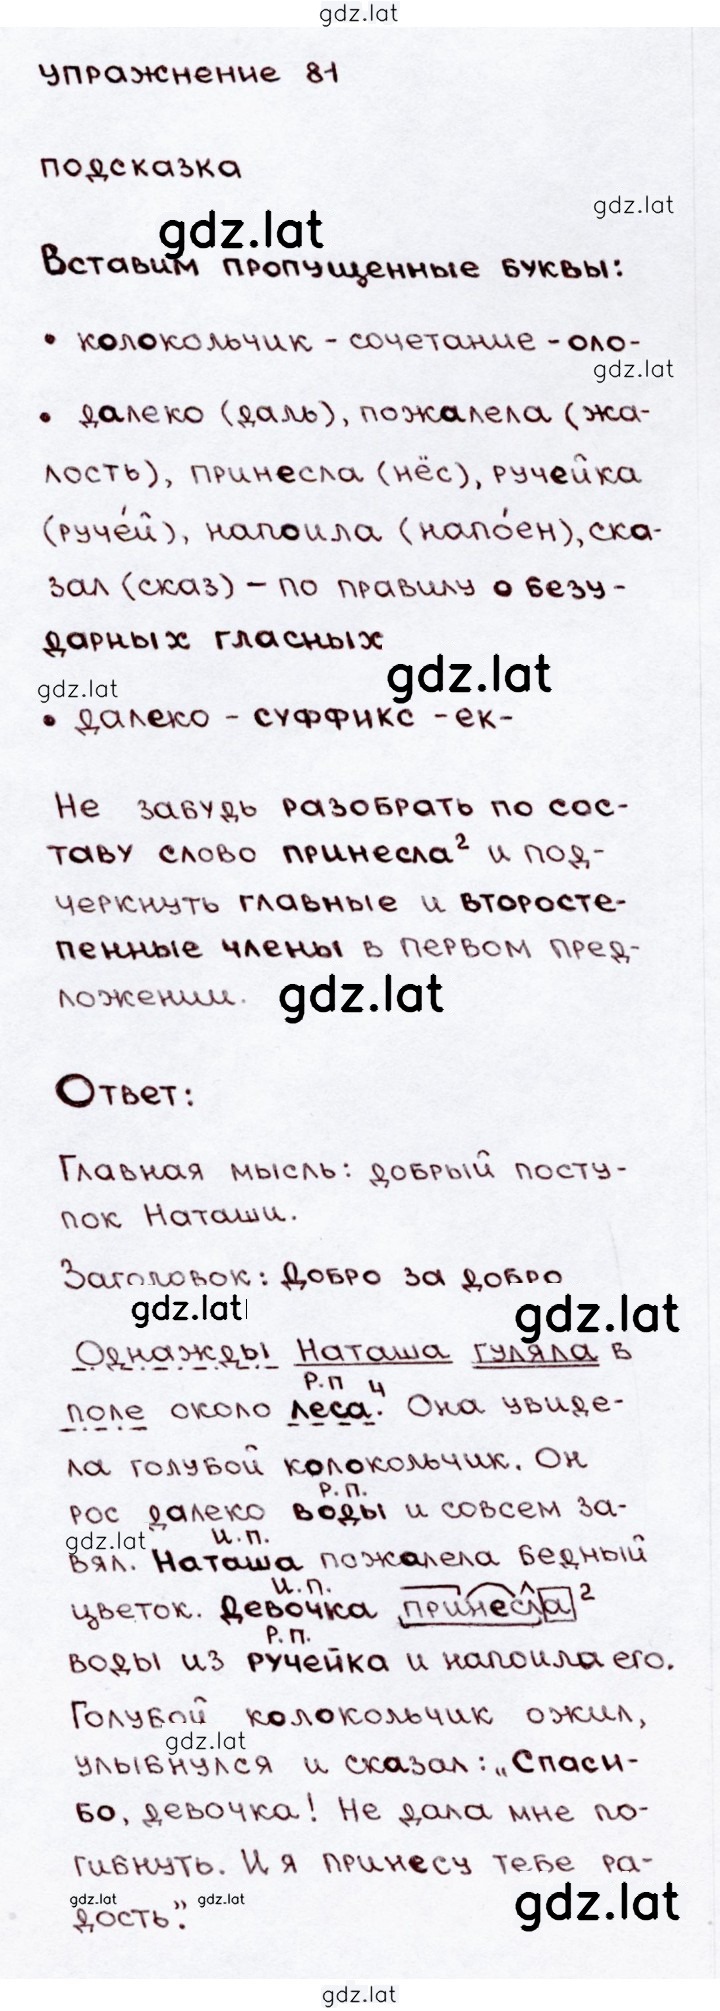 gdz.lat
упражнение 81
подсказка
gdz.lat
gdz.lat
Вставим пропущенные буквы:
• колокольчик - сочетание -оло-
gdz.lat
• далеко (даль), пожалела (жа-
лость), принесла (нёс), ручейка
(руче́й), напоила (напо́ен), ска-
зал (сказ) – по правилу о безу-
дарных гласных
gdz.lat
gdz.lat
• далеко - суффикс -ек-
Не забудь разобрать по сос-
таву слово принесла² и под-
черкнуть главные и второсте-
пенные члены в первом пред-
ложении.
gdz.lat
Ответ:
Главная мысль: добрый посту-
пок Наташи.
Заголовок: Добро за добро
gdz.lat
gdz.lat
Однажды Наташа гуляла в
Р.п 4
поле около леса. Она увиде-
ла голубой колокольчик. Он
Р.п.
рос далеко воды и совсем за-
gdz.lat
И.п.
вял. Наташа пожалела бедный
И.п.
цветок. Девочка принесла²
Р.п.
воды из ручейка и напоила его.
Голубой колокольчик ожил,
gdz.lat
улыбнулся и сказал: „Спаси-
бо, девочка! Не дала мне по-
гибнуть. И я принесу тебе ра-
gdz.lat
gdz.lat
gdz.lat
дость”.
gdz.lat